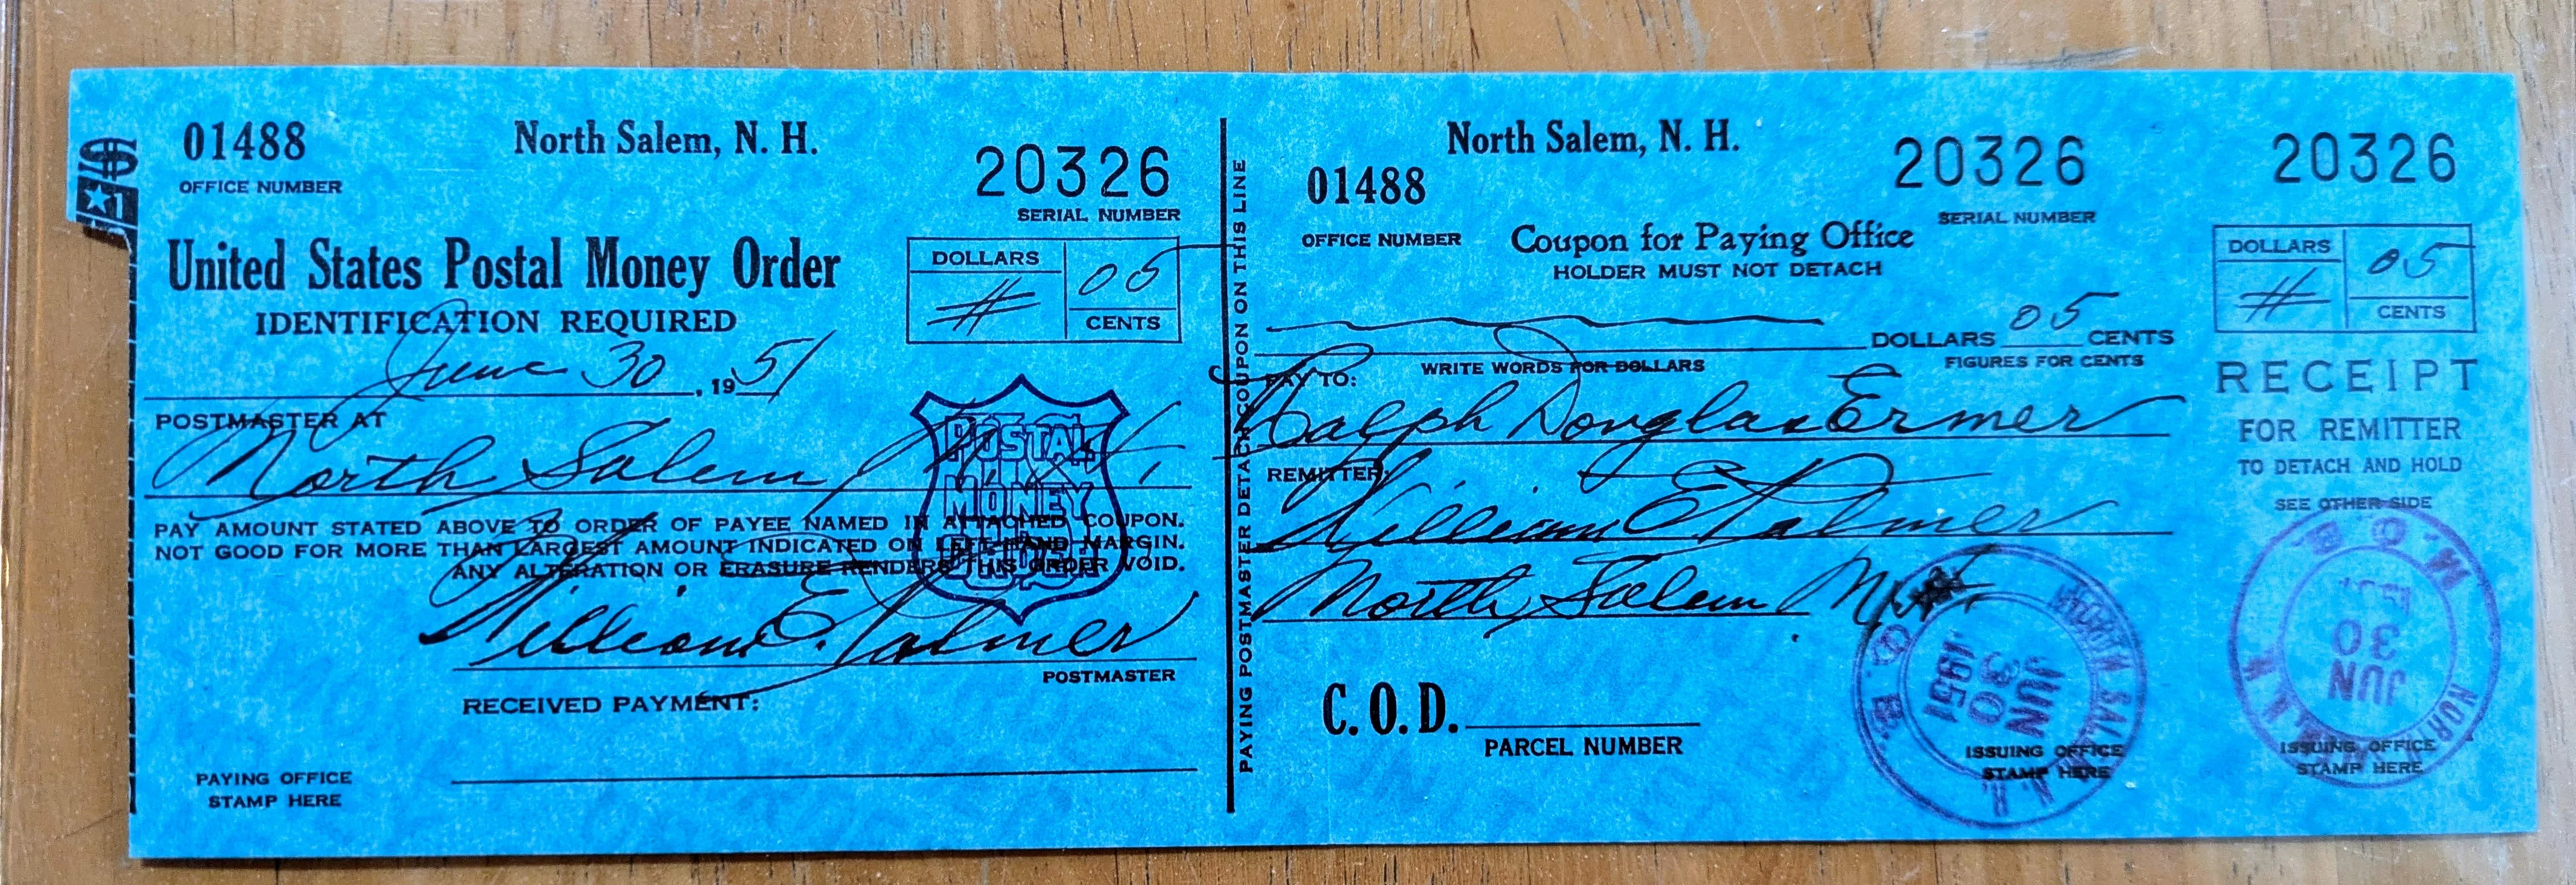 $
1
01488
OFFICE NUMBER
North Salem, N. H.
20326
SERIAL NUMBER
United States Postal Money Order
IDENTIFICATION REQUIRED
DOLLARS
#
05
CENTS
June 30, 1951
POSTMASTER AT
North Salem
PAY AMOUNT STATED ABOVE TO ORDER OF PAYEE NAMED IN ATTACHED COUPON.
NOT GOOD FOR MORE THAN LARGEST AMOUNT INDICATED ON LEFT HAND MARGIN.
ANY ALTERATION OR ERASURE RENDERS THIS ORDER VOID.
POSTAL
MONEY
ORDER
William E. Palmer
POSTMASTER
RECEIVED PAYMENT:
PAYING OFFICE
STAMP HERE
PAYING POSTMASTER DETACH COUPON ON THIS LINE
North Salem, N. H.
01488
OFFICE NUMBER
20326
SERIAL NUMBER
Coupon for Paying Office
HOLDER MUST NOT DETACH
DOLLARS 05 CENTS
WRITE WORDS FOR DOLLARS
FIGURES FOR CENTS
PAY TO:
Ralph Douglas Ermer
REMITTER:
William E Palmer
North Salem
C.O.D.
PARCEL NUMBER
NORTH SALEM
JUN
30
1951
ISSUING OFFICE
STAMP HERE
20326
DOLLARS
#
05
CENTS
RECEIPT
FOR REMITTER
TO DETACH AND HOLD
SEE OTHER SIDE
M.O.B.
JUN
30
ISSUING OFFICE
STAMP HERE